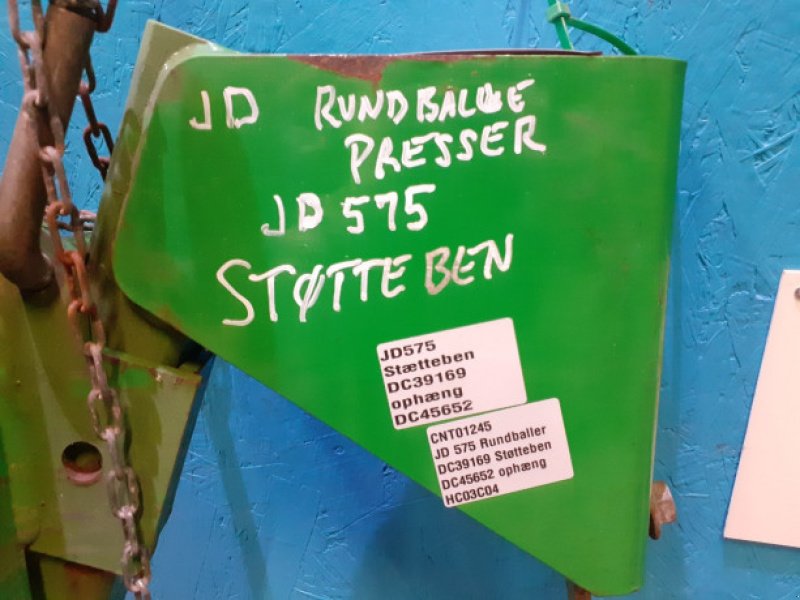 JD RUNDBALLE
PRESSER
JD 575
STØTTEBEN
JD575
Stætteben
DC39169
ophæng
DC45652
CNT01245
JD 575 Rundballer
DC39169 Støtteben
DC45652 ophæng
HC03C04